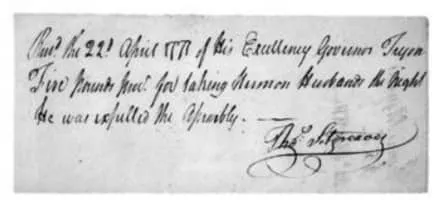 Recd. the 22d. April 1771 of His Excellency Governor Tryon
Five Pounds procl. for taking Hermon Husbands the Night
He was expelled the Assembly. —
Thos.